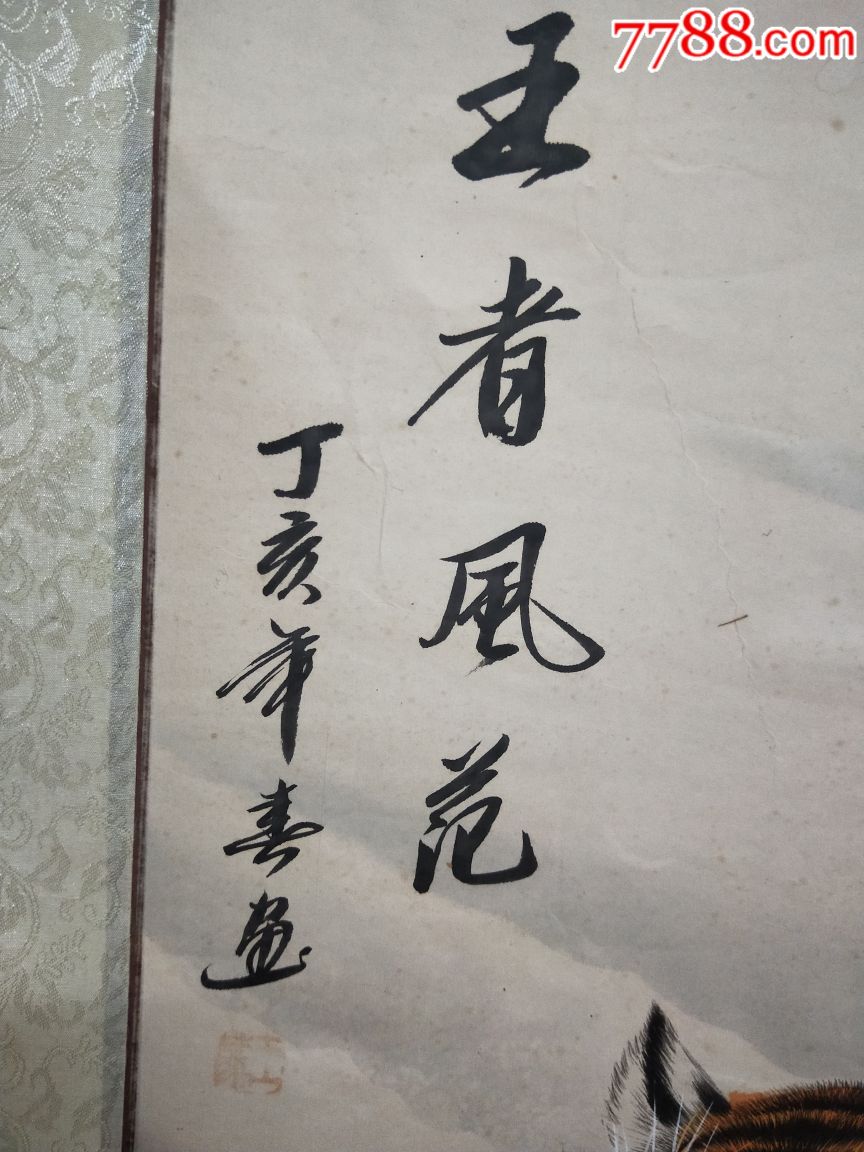 7788.com
王者風范
丁亥年春画